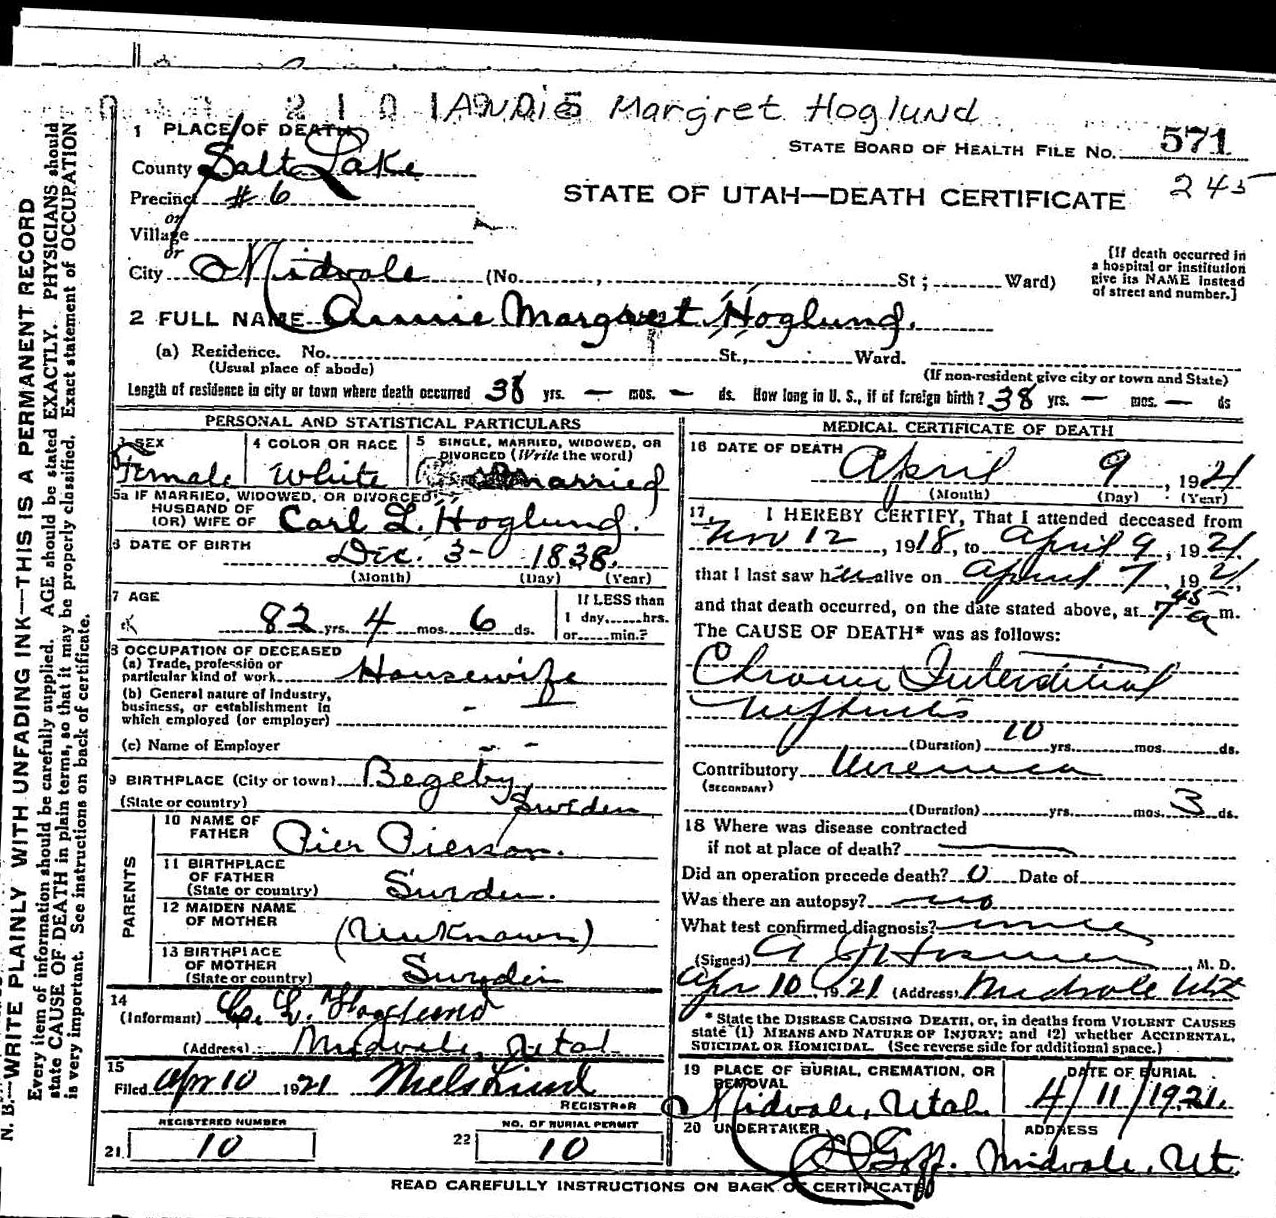 2 1 0 1 Annie Margret Hoglund
1 PLACE OF DEATH
STATE BOARD OF HEALTH FILE NO. 571
245
County Salt Lake
Precinct #6
STATE OF UTAH—DEATH CERTIFICATE
or
Village
or
City Midvale (No. , St ; Ward)
[If death occurred in
a hospital or institution
give its NAME instead
of street and number.]
2 FULL NAME Annie Margret Hoglund.
(a) Residence. No. St., Ward.
(Usual place of abode) (If non-resident give city or town and State)
Length of residence in city or town where death occurred 38 yrs. — mos. — ds. How long in U. S., if of foreign birth? 38 yrs. — mos. — ds
PERSONAL AND STATISTICAL PARTICULARS
3 SEX
Female
4 COLOR OR RACE
White
5 SINGLE, MARRIED, WIDOWED, OR
DIVORCED (Write the word)
Married
5a IF MARRIED, WIDOWED, OR DIVORCED
HUSBAND OF
(OR) WIFE OF Carl L. Hoglund.
6 DATE OF BIRTH Dec. 3- 1838.
(Month) (Day) (Year)
7 AGE
82 yrs. 4 mos. 6 ds.
If LESS than
1 day, hrs.
or min.?
8 OCCUPATION OF DECEASED
(a) Trade, profession or
particular kind of work Housewife
(b) General nature of industry,
business, or establishment in
which employed (or employer)
(c) Name of Employer
9 BIRTHPLACE (City or town) Begeby
(State or country) Sweden
PARENTS
10 NAME OF
FATHER Pier Pierson.
11 BIRTHPLACE
OF FATHER
(State or country) Sweden.
12 MAIDEN NAME
OF MOTHER (Unknown)
13 BIRTHPLACE
OF MOTHER
(State or country) Sweden
14
(Informant) C. L. Hoglund
(Address) Midvale, Utah
15
Filed Apr 10 1921 Niels Lind
REGISTRAR
REGISTERED NUMBER
21 10
NO. OF BURIAL PERMIT
22 10
MEDICAL CERTIFICATE OF DEATH
16 DATE OF DEATH
April 9, 1921
(Month) (Day) (Year)
17 I HEREBY CERTIFY, That I attended deceased from
Nov 12, 1918, to April 9, 1921
that I last saw her alive on April 7, 1921
and that death occurred, on the date stated above, at 7 45 a m.
The CAUSE OF DEATH* was as follows:
Chronic Interstitial
Nephritis
(Duration) 10 yrs. mos. ds.
Contributory Uremia
(SECONDARY)
(Duration) yrs. mos. 3 ds.
18 Where was disease contracted
if not at place of death? —
Did an operation precede death? 0 Date of
Was there an autopsy? no
What test confirmed diagnosis?
(Signed) M. D.
Apr 10, 1921 (Address) Midvale Ut
* State the DISEASE CAUSING DEATH, or, in deaths from VIOLENT CAUSES
state (1) MEANS AND NATURE OF INJURY; and (2) whether ACCIDENTAL,
SUICIDAL OR HOMICIDAL. (See reverse side for additional space.)
19 PLACE OF BURIAL, CREMATION, OR
REMOVAL
Midvale, Utah.
DATE OF BURIAL
4/11/1921.
20 UNDERTAKER
Goff.
ADDRESS
Midvale, Ut.
READ CAREFULLY INSTRUCTIONS ON BACK OF CERTIFICATE
N. B.—WRITE PLAINLY WITH UNFADING INK—THIS IS A PERMANENT RECORD
Every item of information should be carefully supplied. AGE should be stated EXACTLY. PHYSICIANS should
state CAUSE OF DEATH in plain terms, so that it may be properly classified. Exact statement of OCCUPATION
is very important. See instructions on back of certificate.